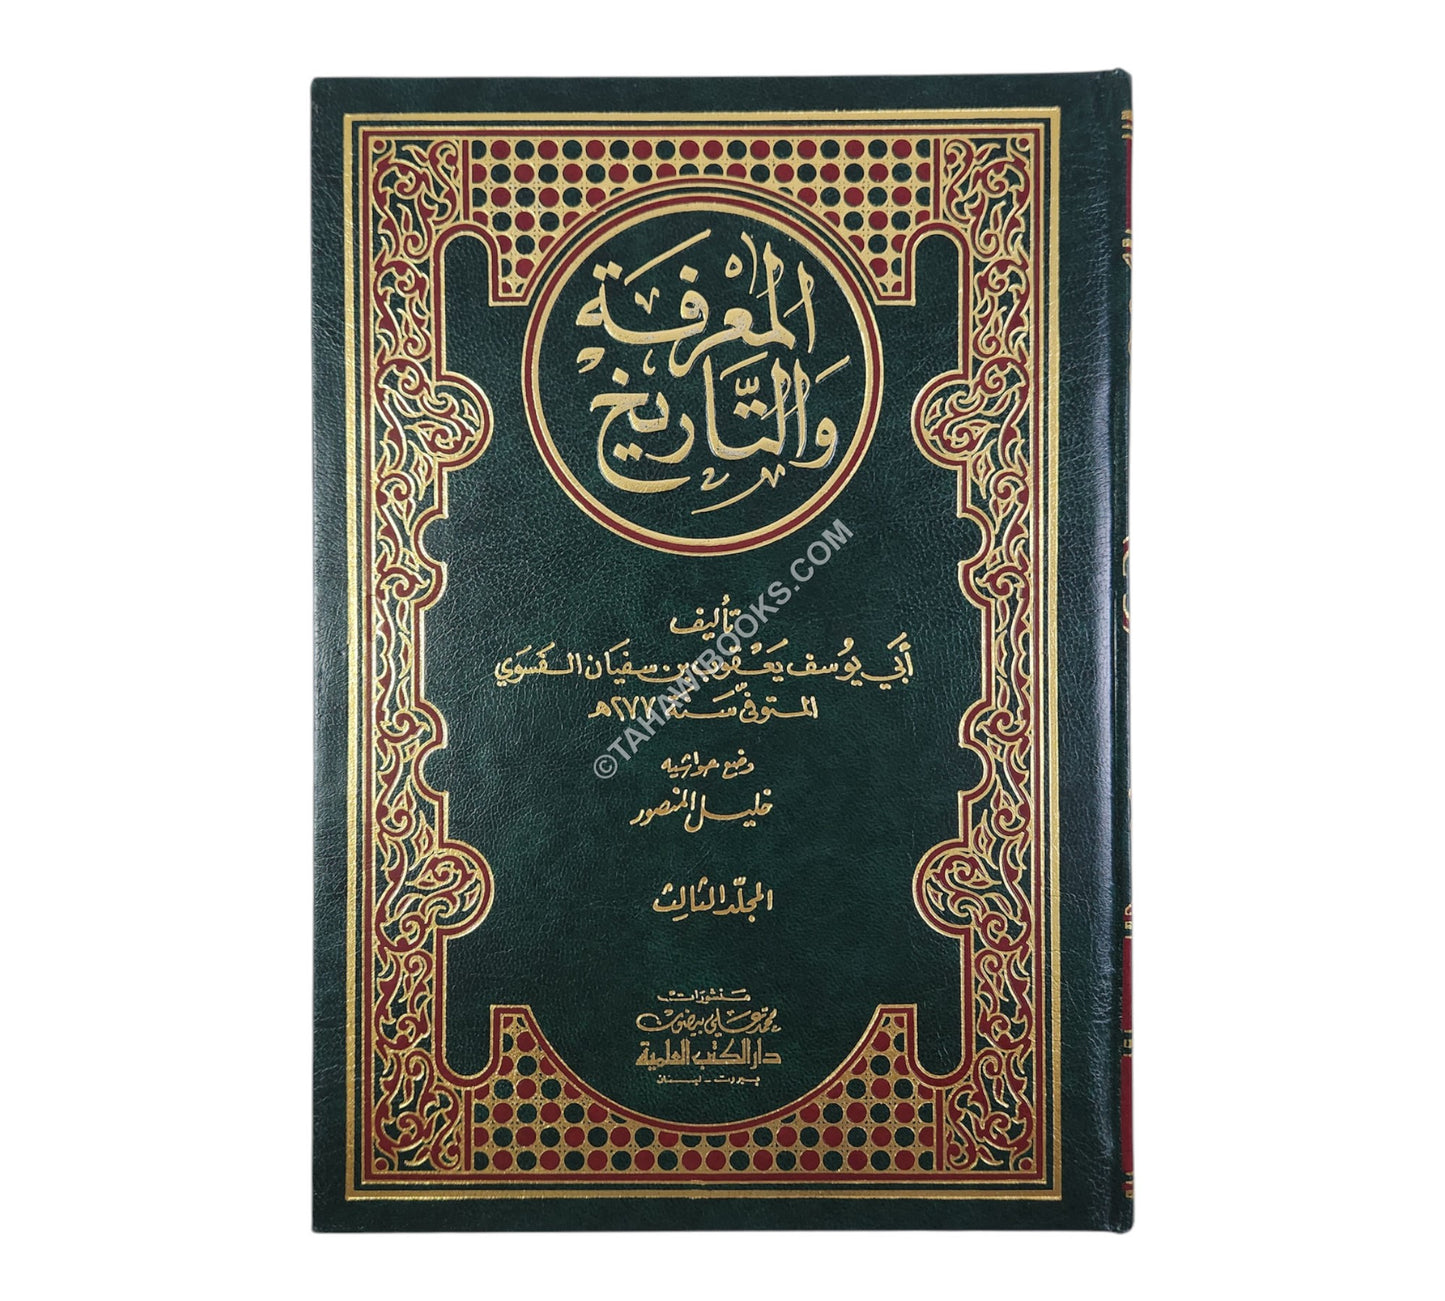 المَعْرِفَة
وَالتَّارِيخ
تأليف
أَبي يوُسف يَعْقوب بن سفيَان الفَسَوي
المتوفّى سَنة ٢٧٧هـ
وضع حواشيه
خليل المنصور
المجلّد الثالث
مَنشورَات
محمّد عَلي بيضون
دار الكتب العلمية
بيروت - لبنان
©TAHAWIBOOKS.COM